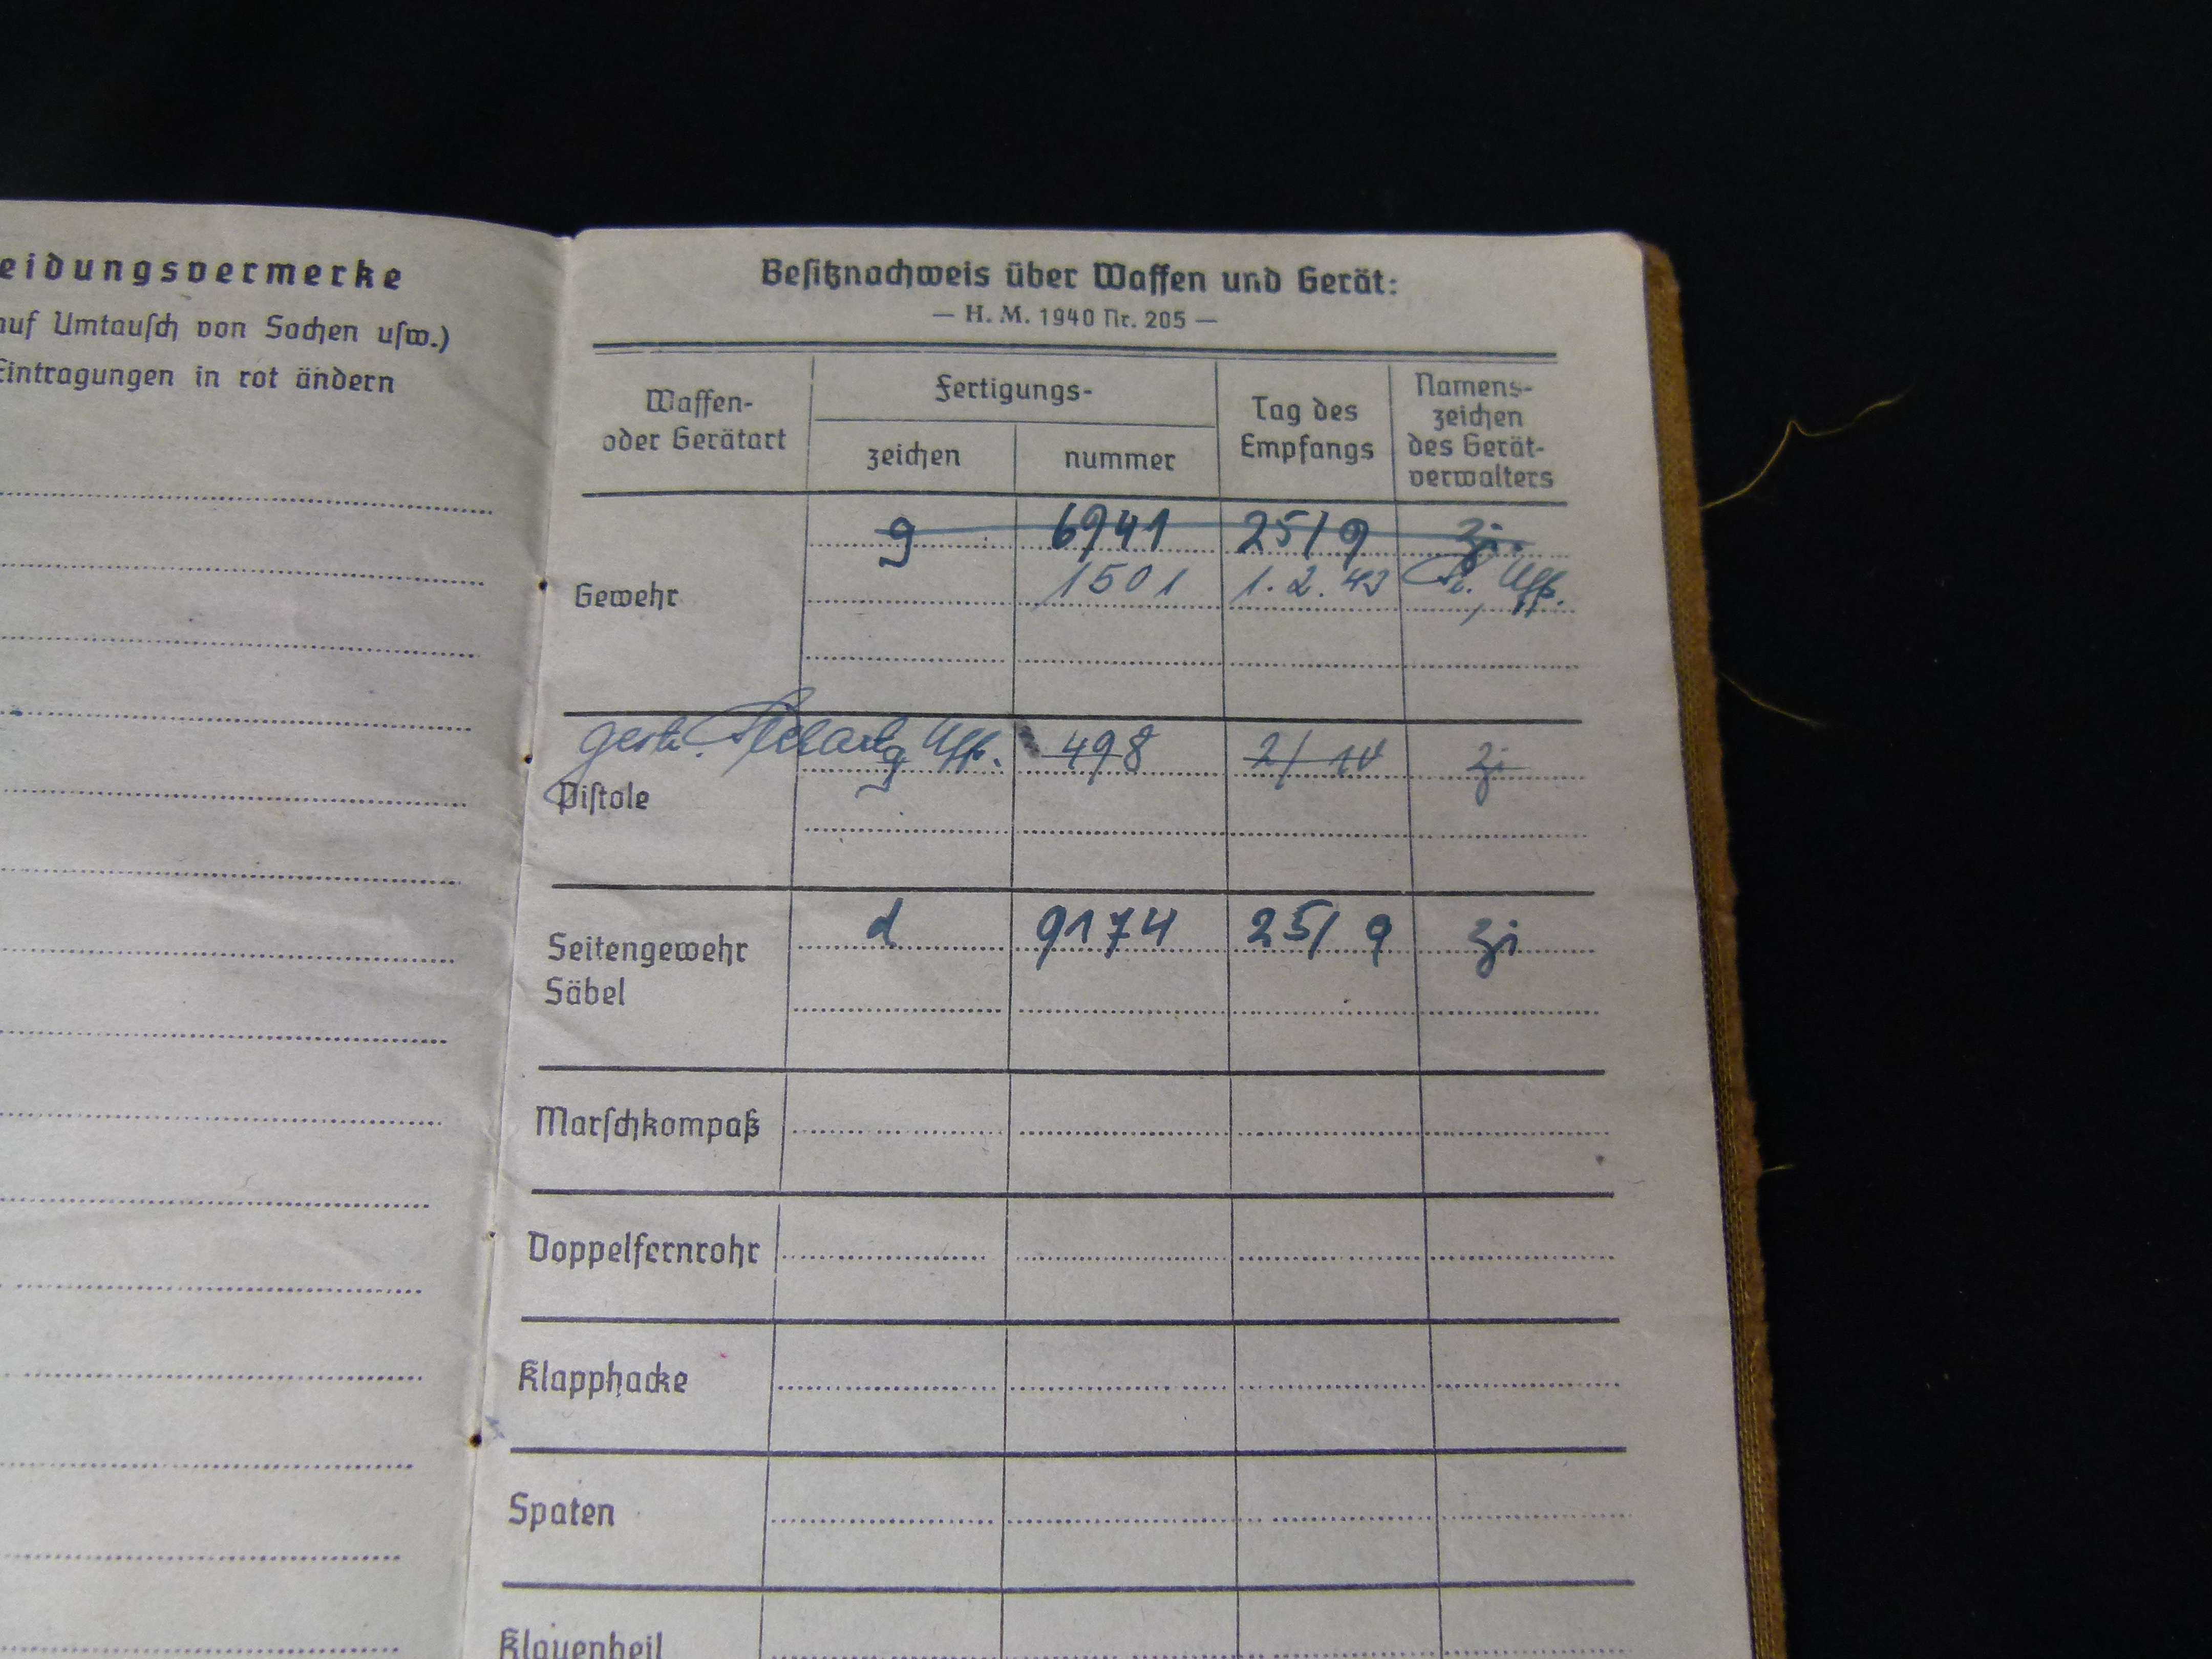 eidungsvermerke
auf Umtausch von Sachen usw.)
Eintragungen in rot ändern
Besitznachweis über Waffen und Gerät:
— H. M. 1940 Nr. 205 —
Waffen-
oder Gerätart
Fertigungs-
zeichen
nummer
Tag des
Empfangs
Namens-
zeichen
des Gerät-
verwalters
g 6941 25/9 Zi.
Gewehr 1501 1.2.43 Uffz.
gestr. Uffz.
g 498 2/10 Zi
Pistole
d 9174 25/9 Zi
Seitengewehr
Säbel
Marschkompaß
Doppelfernrohr
Klapphacke
Spaten
Klauenbeil